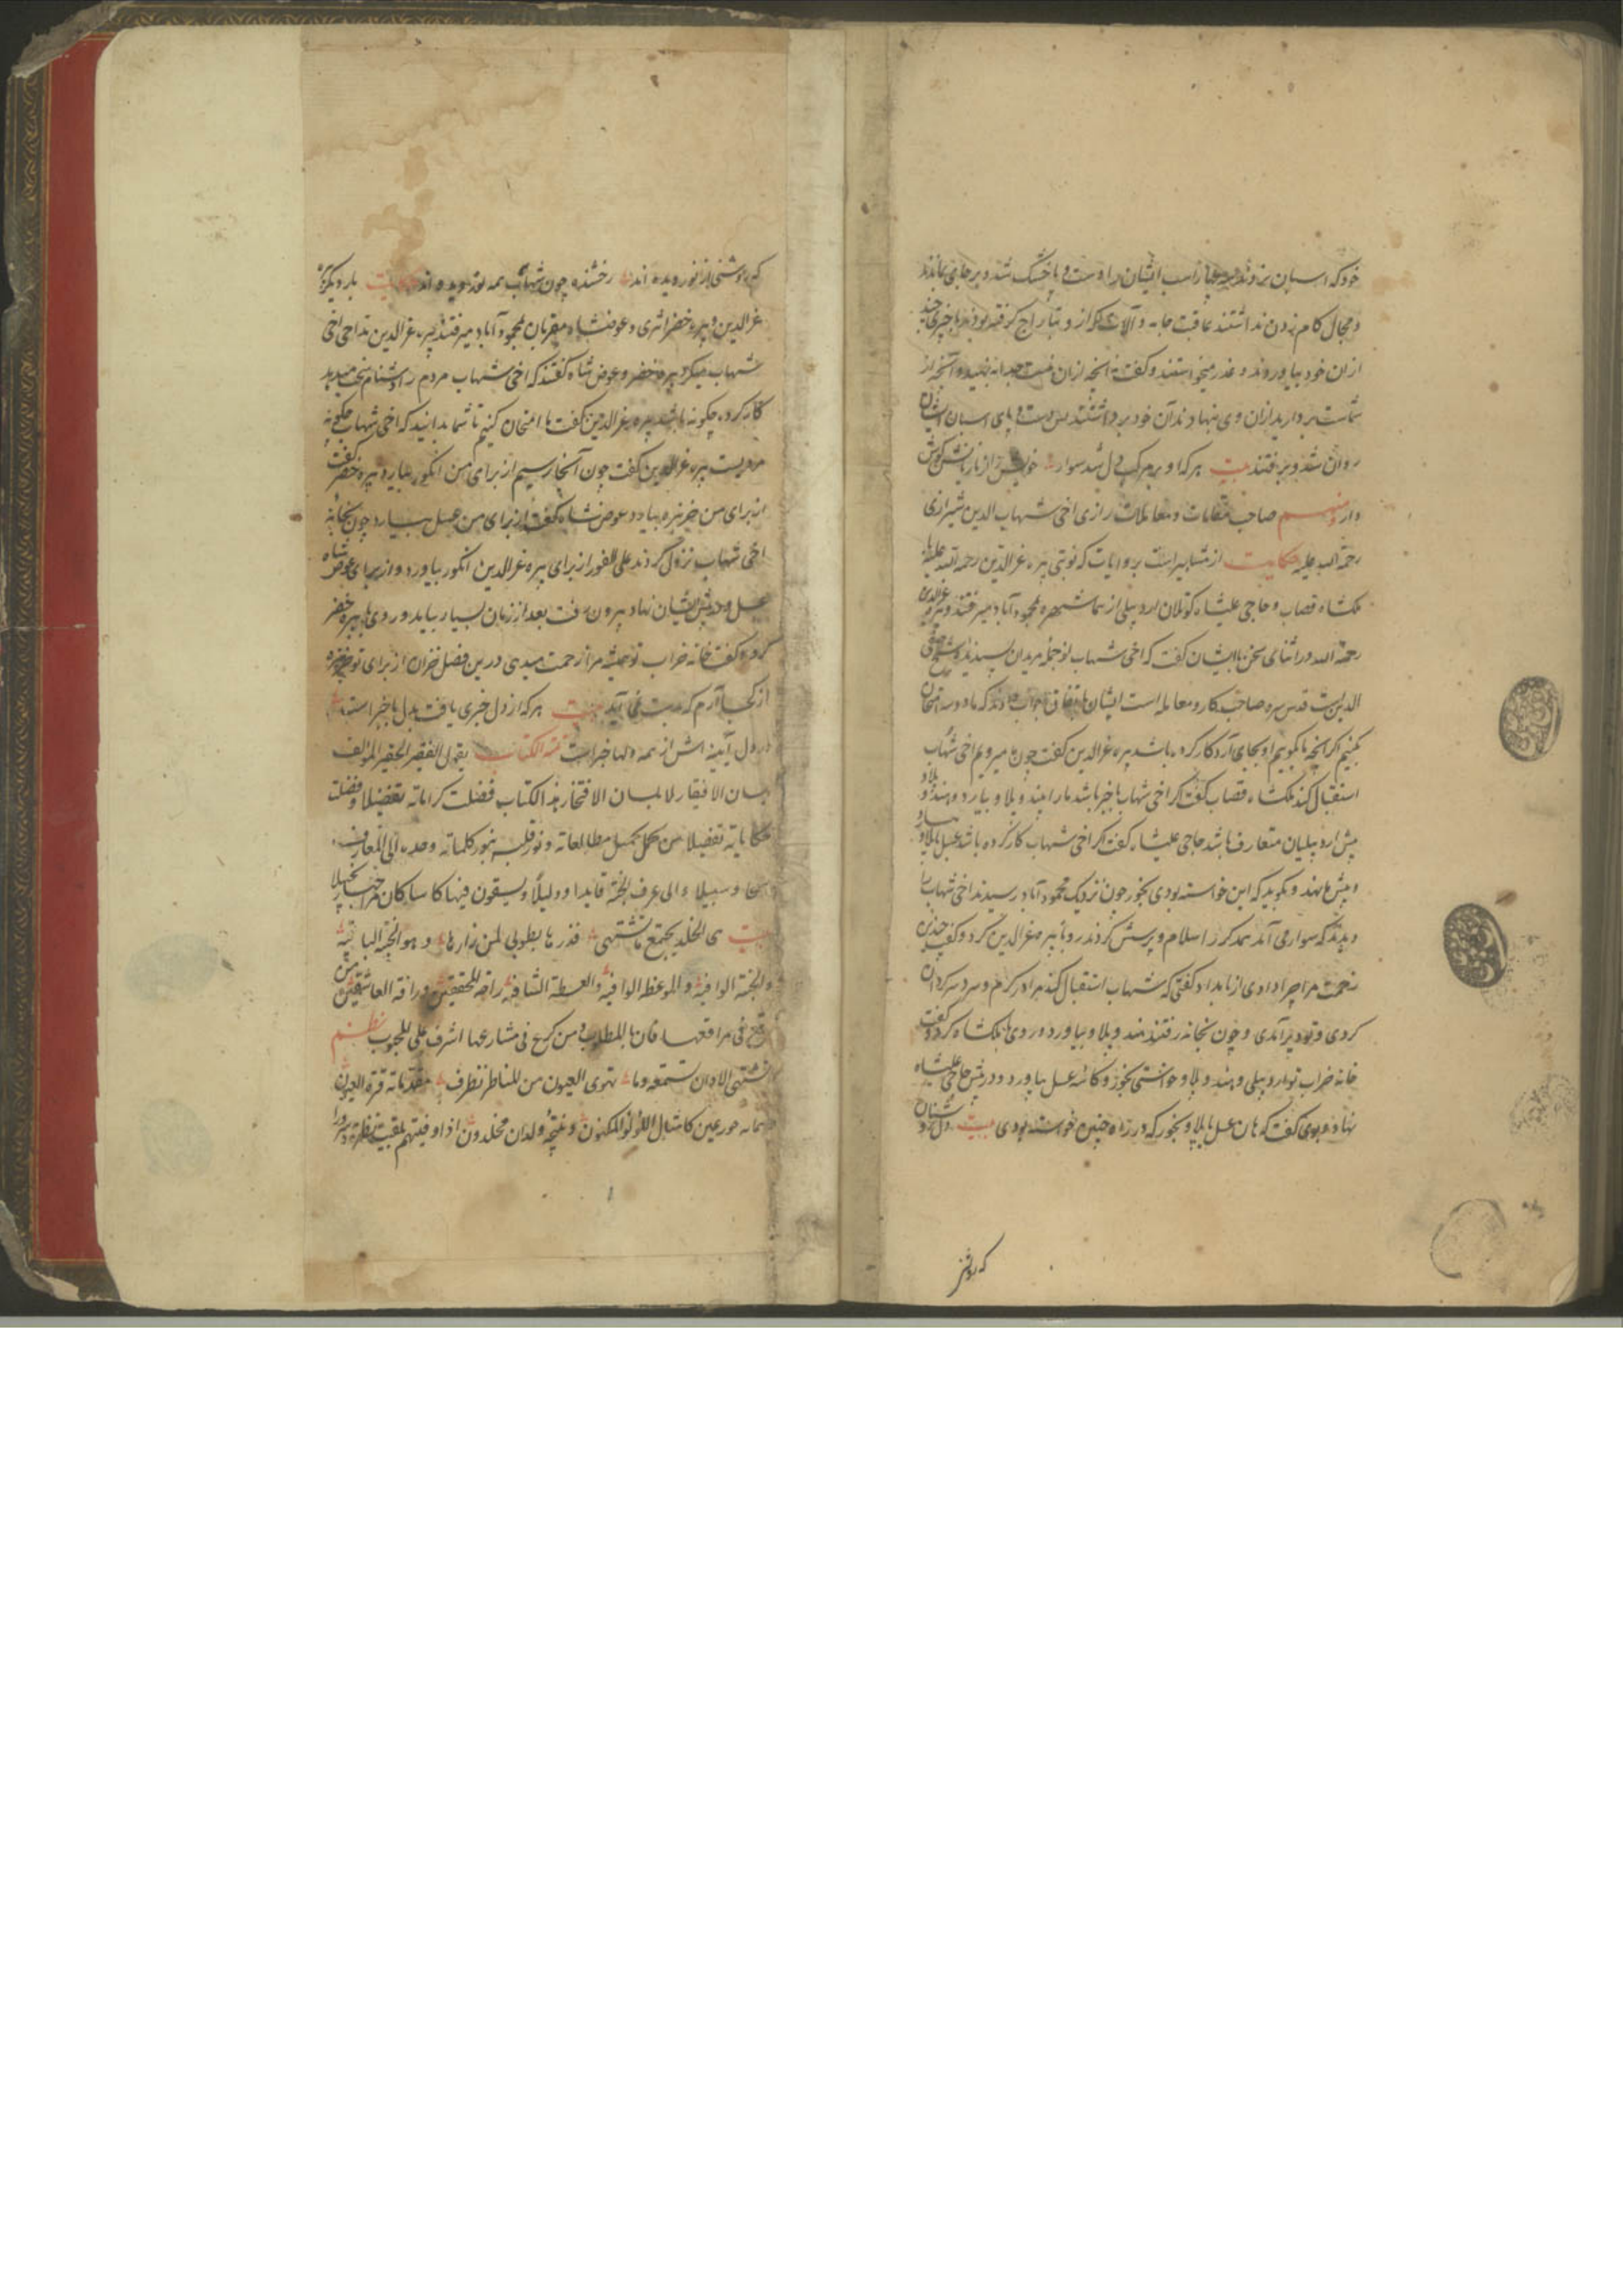 خود که اسبان بزدند هر چهار اسب ایشان را دست و پا خشک شد و بر جای بماندند
و مجال کام زدن نداشتند عاقبت جامه و آلات که از و بتاراج گرفته بودند با چیزی چند
از آن خود بیاوردند و عذر میخواستند و گفتند آنچه از آن فیت جدا بنهید و آنچه از
شماست بردارید از آن وی بنهادند آن خود برداشتند پس دست و پای اسبان ایشان
روان شد و برفتند بیت هر که او بر مرکب دل شد سوار
دار ومنهم صاحب مقامات و معاملات رازی اخی شهاب الدین شیرازی
رحمة الله علیه حکایت از مشاهیر است بروایات که نوبتی پیره عزالدین رحمة الله علیه با
ملکشاه قصاب و حاجی علیشاه کوتلان اردبیلی از سماشهره بمحمودآباد میرفتند و پیره عزالدین
رحمة الله در اثنای سخن با ایشان گفت که اخی شهاب نو جمله مریدان سید زاده شیخ صفی
الدین است قدس سره صاحب کار و معامله است ایشان باتفاق جواب دادند که ما او را امتحان
کنیم اگر آنچه ما بگوییم او بجای آرد کار کرده باشد پیره عزالدین گفت چون ما میرویم اخی شهاب
استقبال کند ملکشاه قصاب گفت اگر اخی شهاب با خبر باشد ما را هند و پلاو بیارد و هند و پلاو
پیش اردبیلیان متعارف باشد حاجی علیشاه گفت اگر اخی شهاب کار کرده باشد عسل با پلاو بیارد
و پیش ما نهد و بگوید که این خواسته بودی بخور چون نزدیک محمودآباد رسیدند اخی شهاب را
دیدند که سوار می آمد همدگر را سلام و پرسش کردند رو با پیره عزالدین کرد و گفت چندین
زحمت مرا چرا دادی از بامداد گفتی که شهاب استقبال کند مرا در گرم و سرد سرگردان
کردی و تو دیر آمدی و چون بخانه رفتند هند و پلاو بیاورد و روی با ملکشاه کرد و گفت
خانه خراب تو اردبیلی و هند و پلاو خواستی بخور و کاسه عسل بیاورد و در پیش حاجی علیشاه
نهاد و بوی گفت که هان عسل با پلاو بخور که در راه چنین خواسته بودی بیت دل روشنان
که روشنی
که روشنی از نور دیده اند رخشنده چون شهاب همه نور دیده اند حکایت بار دیگر پیره
عزالدین و پیره خضر اثری و عوضشاه مقربان بمحمودآباد میرفتند پیره عزالدین مداحی اخی
شهاب میکرد پیره خضر و عوض شاه گفتند که اخی شهاب مردم را دشنام سخت میدهد
کار کرده چگونه باشد پیره عزالدین گفت ما امتحان کنیم تا شما بدانید که اخی شهاب چگونه
مردیست پیره عزالدین گفت چون آنجا رسیم از برای من انگور بیارد پیره خضر گفت
از برای من خربزه بیارد عوض شاه گفت از برای من عسل بیارد چون بخانه
اخی شهاب نزول کردند علی الفور از برای پیره عزالدین انگور بیاورد و از برای عوض شاه
عسل و در پیش ایشان نهاد بیرون رفت بعد از زمان بسیار بیامد و روی با پیره خضر
کرد و گفت خانه خراب تو همیشه مرا زحمت میدهی درین فصل خزان از برای تو خربزه
از کجا آرم که بدست نمی آید بیت هر که از دل خبری یافت بدل با خبر است
در دل آینه اش از همه دلها خبر است تتمة الکتاب یقول الفقیر الحقیر المؤلف
بلسان الافتقار لا بلسان الافتخار هذا الکتاب فضلت کراماته تفضیلا و فصلت
حکایاته تفصیلا من کحل بکحل مطالعاته و نور قلبه بنور کلماته وجده الی المعارف
و سبیلا و الی غرف الجنة قایدا و دلیلا و یسقون فیها کاسا کان مزاجها زنجبیلا
بیت هی الخلد یجمع ما تشتهی فزرها بطوبی لمن زارها وهو الجنة الباقیة
والجنة الواقیة والموعظة الوافیة والعسلة الشافیة راحة للمحققین ورافة العاشقین من
رتع فی مراتعها فاز بالمطلوب ومن کرع فی مشارعها اشرف علی المحبوب نظم
تشتهی الاذان تستمعه وما تهوی العیون من المناظر تطرف مقدماته قرة العیون
حور عین کامثال اللؤلؤ المکنون و نتیجه ولدان مخلدون اذا